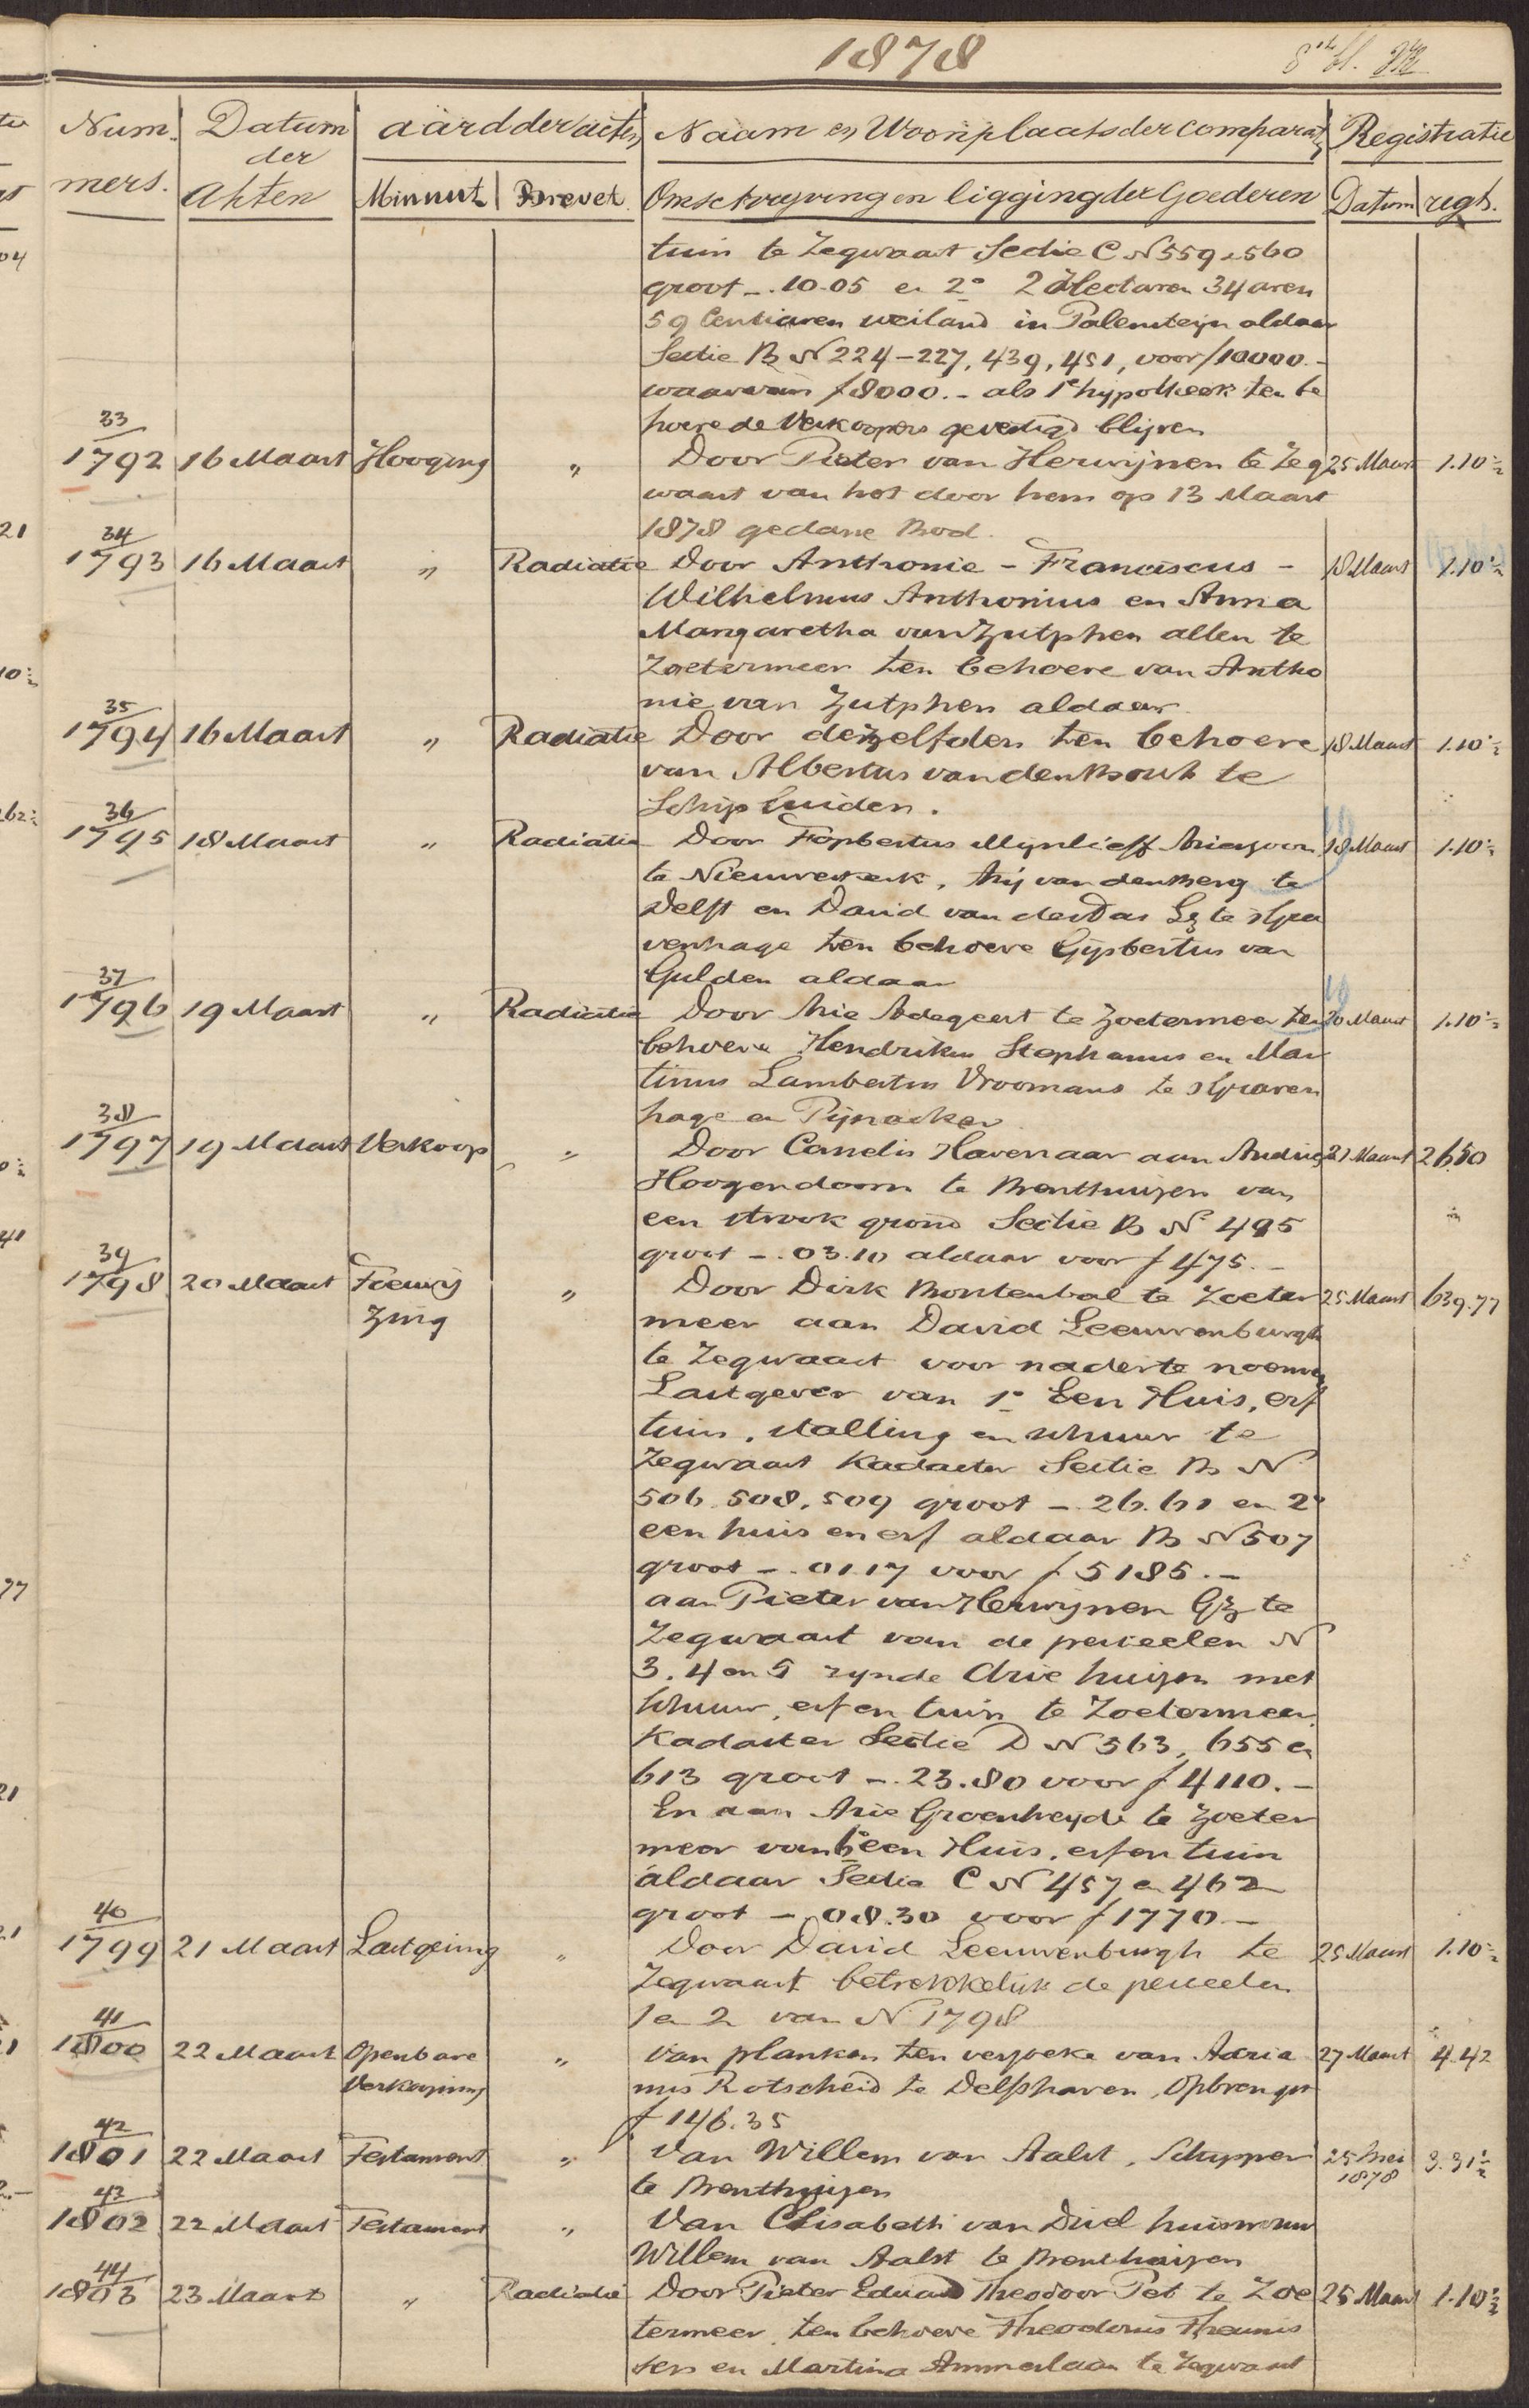 1878
Num- Datum aard der acten Naam en Woonplaats der comparan Registratie
der
mers. Akten Minnut Brevet Omschryving en ligging der Goederen Datum regt.
tuin te Zegwaart Sectie C N 559 e 560
groot -. 10.05 en 2° 2 Hectaren 34 aren
59 Centiaren weiland in Palensteijn aldaar
Sectie B N 224-227, 439, 451, voor f 10000.-
waarvan f 8000.- als 1e hypotheek ten be
hoeve de Verkoopers gevestigd blijven
33
1792 16 Maart Hooging " Door Pieter van Herwijnen te Zeg 25 Maart 1.10½
waart van het door hem op 13 Maart
1878 gedane Bod.
34
1793 16 Maart " Radiatie Door Anthonie - Franciscus - 18 Maart 1.10½
Wilhelmus Anthonius en Anna
Margaretha van Zutphen allen te
Zoetermeer ten behoeve van Antho
nie van Zutphen aldaar.
35
1794 16 Maart " Radiatie Door dezelfden ten behoeve 18 Maart 1.10½
van Albertus van den Bout te
Schipluiden.
36
1795 18 Maart " Radiatie Door Fopbertus Mijnlieff Ariezoon 18 Maart 1.10½
te Nieuwerkerk, Arij van den Berg te
Delft en David van der Das Lz te sGra
venhage ten behoeve Gijsbertus van
Gulden aldaar
37
1796 19 Maart " Radiatie Door Arie Adegeest te Zoetermeer ten 20 Maart 1.10½
behoeve Hendrikus Stephanus en Mar
tinus Lambertus Vroomans te sGraven
hage en Pijnacker
38
1797 19 Maart Verkoop " Door Cornelis Havenaar aan Andries 21 Maart 26.50
Hoogendoorn te Benthuizen van
een strook grond Sectie B N 495
groot -. 03.10 aldaar voor f 475.-
39
1798 20 Maart Toewij " Door Dirk Bontenbal te Zoeter 25 Maart 639.77
zing meer aan David Leeuwenburgh
te Zegwaart voor nader te noemen
Lastgever van 1° Een Huis, erf
tuin, stalling en schuur te
Zegwaart Kadaster Sectie B N
506. 508, 509 groot -. 26.61 en 2°
een huis en erf aldaar B N 507
groot -. 01.17 voor f 5185.-
aan Pieter van Herwijnen Gz te
Zegwaart van de perceelen N
3. 4 en 5 zynde drie huizen met
schuur, erf en tuin te Zoetermeer
Kadaster Sectie D N 563, 655 en
613 groot -. 23.80 voor f 4110.-
En aan Arie Groenheyde te Zoeter
meer van 6 een Huis, erf en tuin
aldaar Sectie C N 457 en 462
groot -. 08.30 voor f 1770.-
40
1799 21 Maart Lastgeving " Door David Leeuwenburgh te 25 Maart 1.10½
Zegwaart betrekkelijk de perceelen
1 en 2 van N 1798
41
1800 22 Maart Openbare " van planken ten verzoeke van Adria 27 Maart 4.42
Verkooping nus Rotscheid te Delfshaven, Opbrengst
f 146.35
42
1801 22 Maart Testament " Van Willem van Aalst, Schipper 25 Mei 3.31½
1878
te Benthuizen
43
1802 22 Maart Testament " Van Elisabeth van Driel huisvrouw
Willem van Aalst te Benthuizen
44
1803 23 Maart " Radiatie Door Pieter Eduard Theodoor Pet te Zoe 25 Maart 1.10½
termeer, ten behoeve Theodorus Theunis
sen en Martina Ammerlaan te Zegwaart